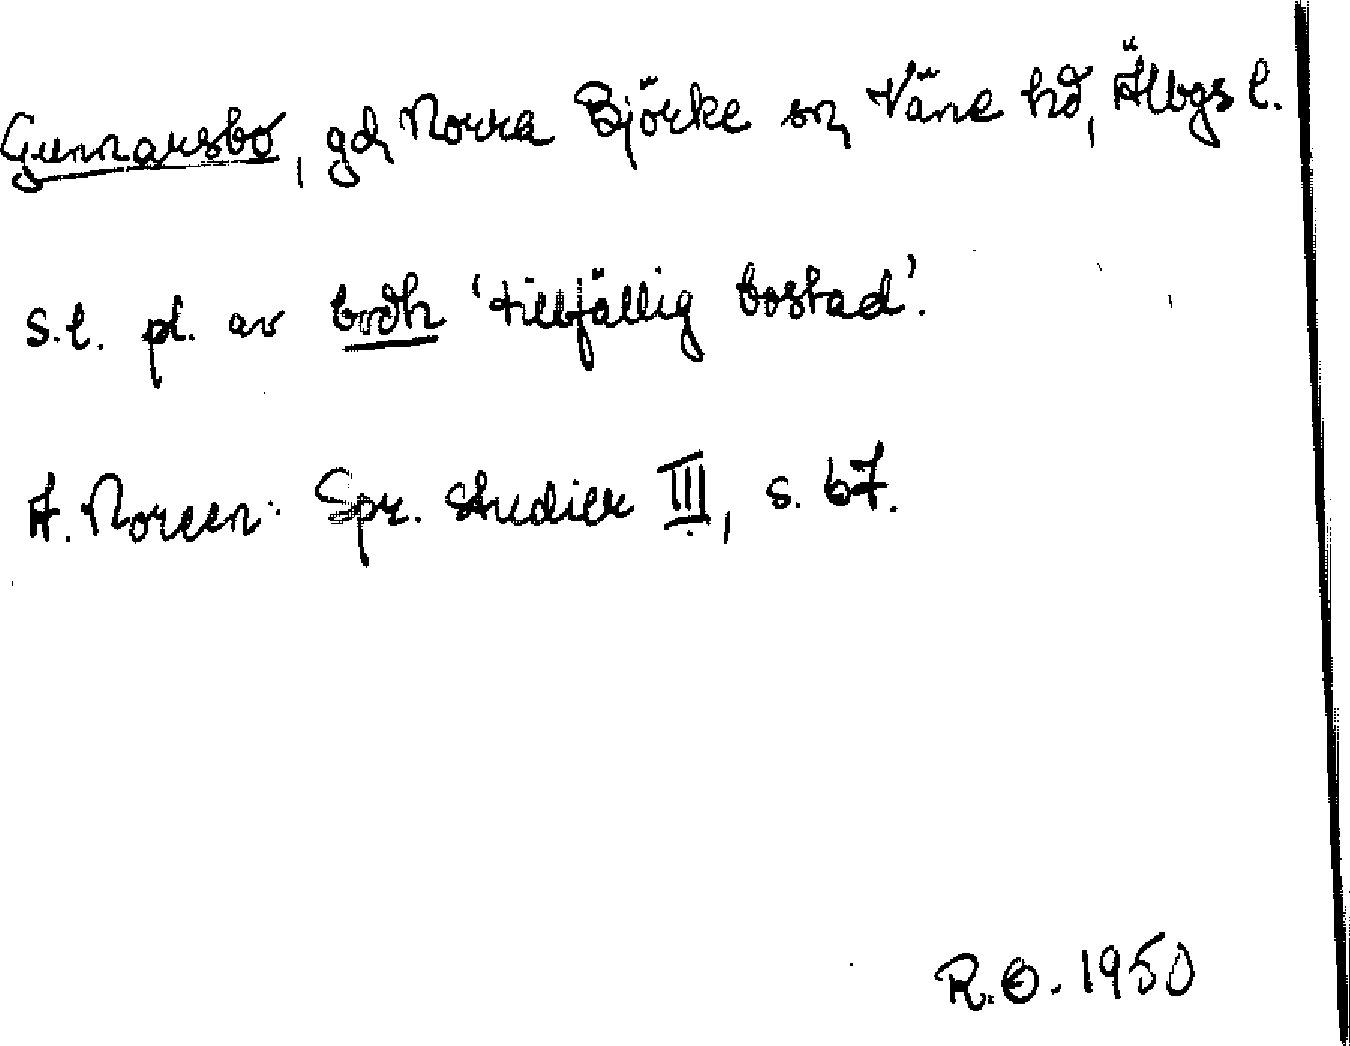 Gunnarsbo, gd, Norra Björke sn, Väne hd, Älvbgs l.
S.l. pl. av bodh 'tillfällig bostad'.
A. Noreen: Spr. studier III, s. 67.
R.O. 1950